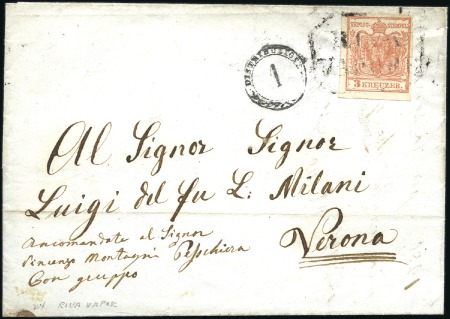 DISTRIBUZIONE
1
3 KREUZER
Al Signor Signor
Luigi del fu L: Milani
Verona
Ancomandate al Signor
Vincenzo Montagni Peschiera
Con gruppo
RIVA VAPOR